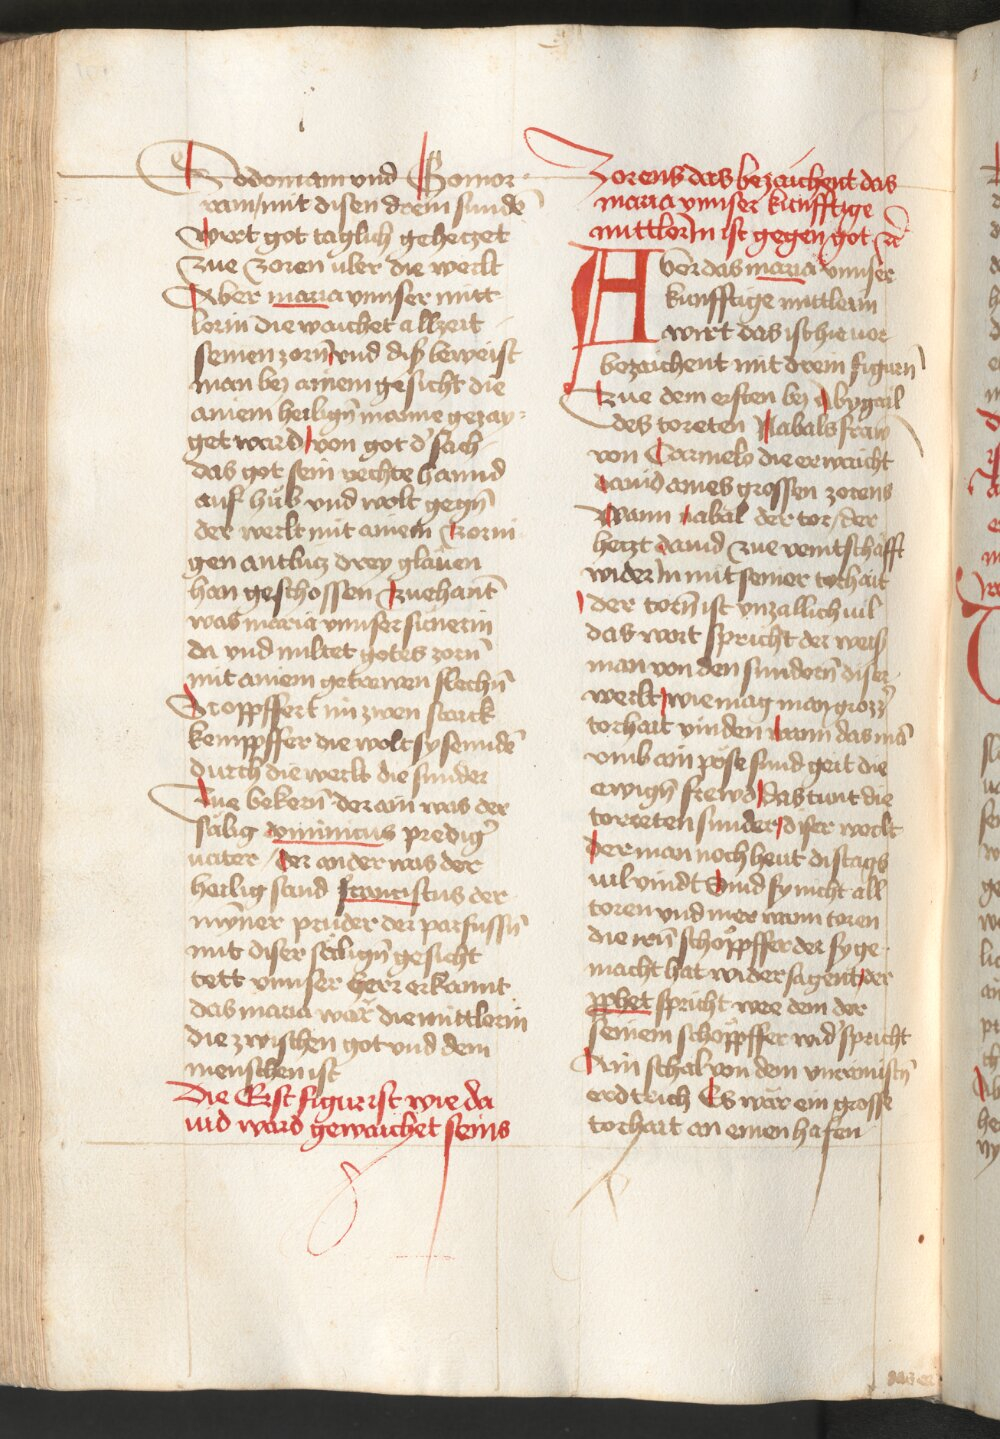 Sodomam vnd Gomor
ram / mit disen drein sundē
wirt got taglich gehetzet
zue zoren uber die werlt
Aber maria vnnser mitt
lerin die waichet allzeit
seinen zorn̄ vnd diß beweist
man bey ainem gesicht die
ainem heilign̄ manne gezay
get ward von got d' sach
das got sein rechte hannd
auf hůb vnd wolt gegn̄
der werlt mit ainem zorni
gen antlucz drey glauen
han geschossen zuehant
was maria vnnser sünerin
da vnd miltet gotes zorn̄
mit ainem getrewen flechn̄
Sy oppffert im zwen starck
kempffer die wolt sy sendē
durch die werlt die sunder
zue bekern̄ der ain was der
sälig dominicus prediger
vater / der ander was der
heilig sand franciscus der
mynner prüder der parfussn̄
mit diser sälign̄ gesicht
tett vnnser herr erkannt
das maria wär die mittlerin
die zwischen got vnd dem
menschen ist
Die Erst figur ist wie da
uid ward gewaichet seins
Zorens das bezaichent das
maria vnnser künfftige
mittlerin ist gegen got ꝛc̄
Aber das maria vnnser
kunfftige mittlerin
wirt das ist hie uor
bezaichent mit drein figurn̄
Zue dem ersten bey Abygail
des toreten Nabals fraw
von Carmelo die erwaicht
dauid aines grossen zorens
Wann nabal der tor / der
hetzt dauid zue veintschafft
wider in mit seiner torhait
der torn̄ ist vnzallich uil
das wort spricht der weiß
man von den sundern̄ diser
werlt wie mag man grozz'
torhait vinden wann das mā
vmb ain pöse sund geit die
ewign̄ frewd das tunt die
torreten sunder diser werlt
der man noch heut distags
uil vindt Vnd sy nicht all
toren vnd mer wann toren
die irn̄ schöppffer der sy ge
macht hat widersagent der
pphet spricht wee dem der
seinem schöppffer wid' spricht
Ain schal von dem vnrainistn̄
erdtrich Es wär ein grosse
torhait an einen hafen